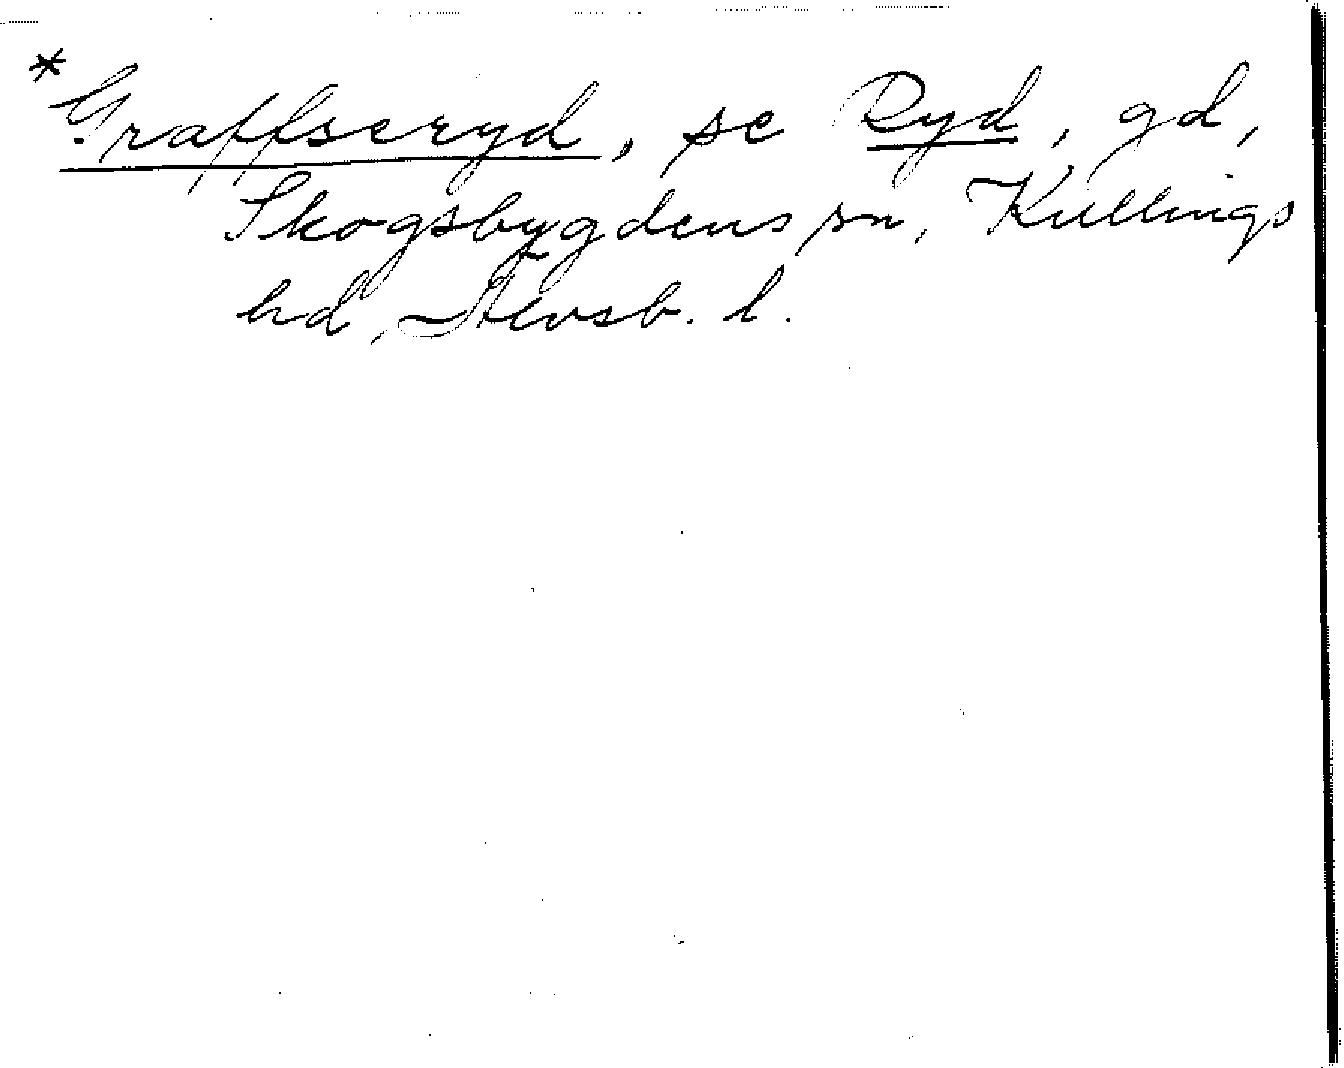 *Graffseryd, se Ryd, gd,
Skogsbygdens sn, Kullings
hd, Älvsb. l.